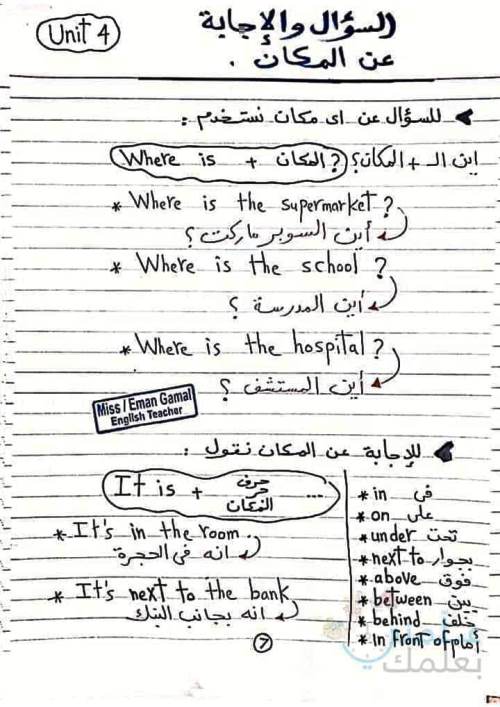 Unit 4
السؤال والإجابة
عن المكان .
للسؤال عن اى مكان نستخدم :
اين الـ + المكان؟ Where is + المكان ?
* Where is the supermarket ?
أين السوبر ماركت ؟
* Where is the school ?
أين المدرسة ؟
* Where is the hospital ?
أين المستشفى ؟
Miss / Eman Gamal
English Teacher
للإجابة عن المكان نقول :
It is + حرف جر المكان ...
* It's in the room.
انه فى الحجرة
* It's next to the bank.
انه بجانب البنك
* in فى
* on على
* under تحت
* next to بجوار
* above فوق
* between بين
* behind خلف
* in front of أمام
بعلمك
7